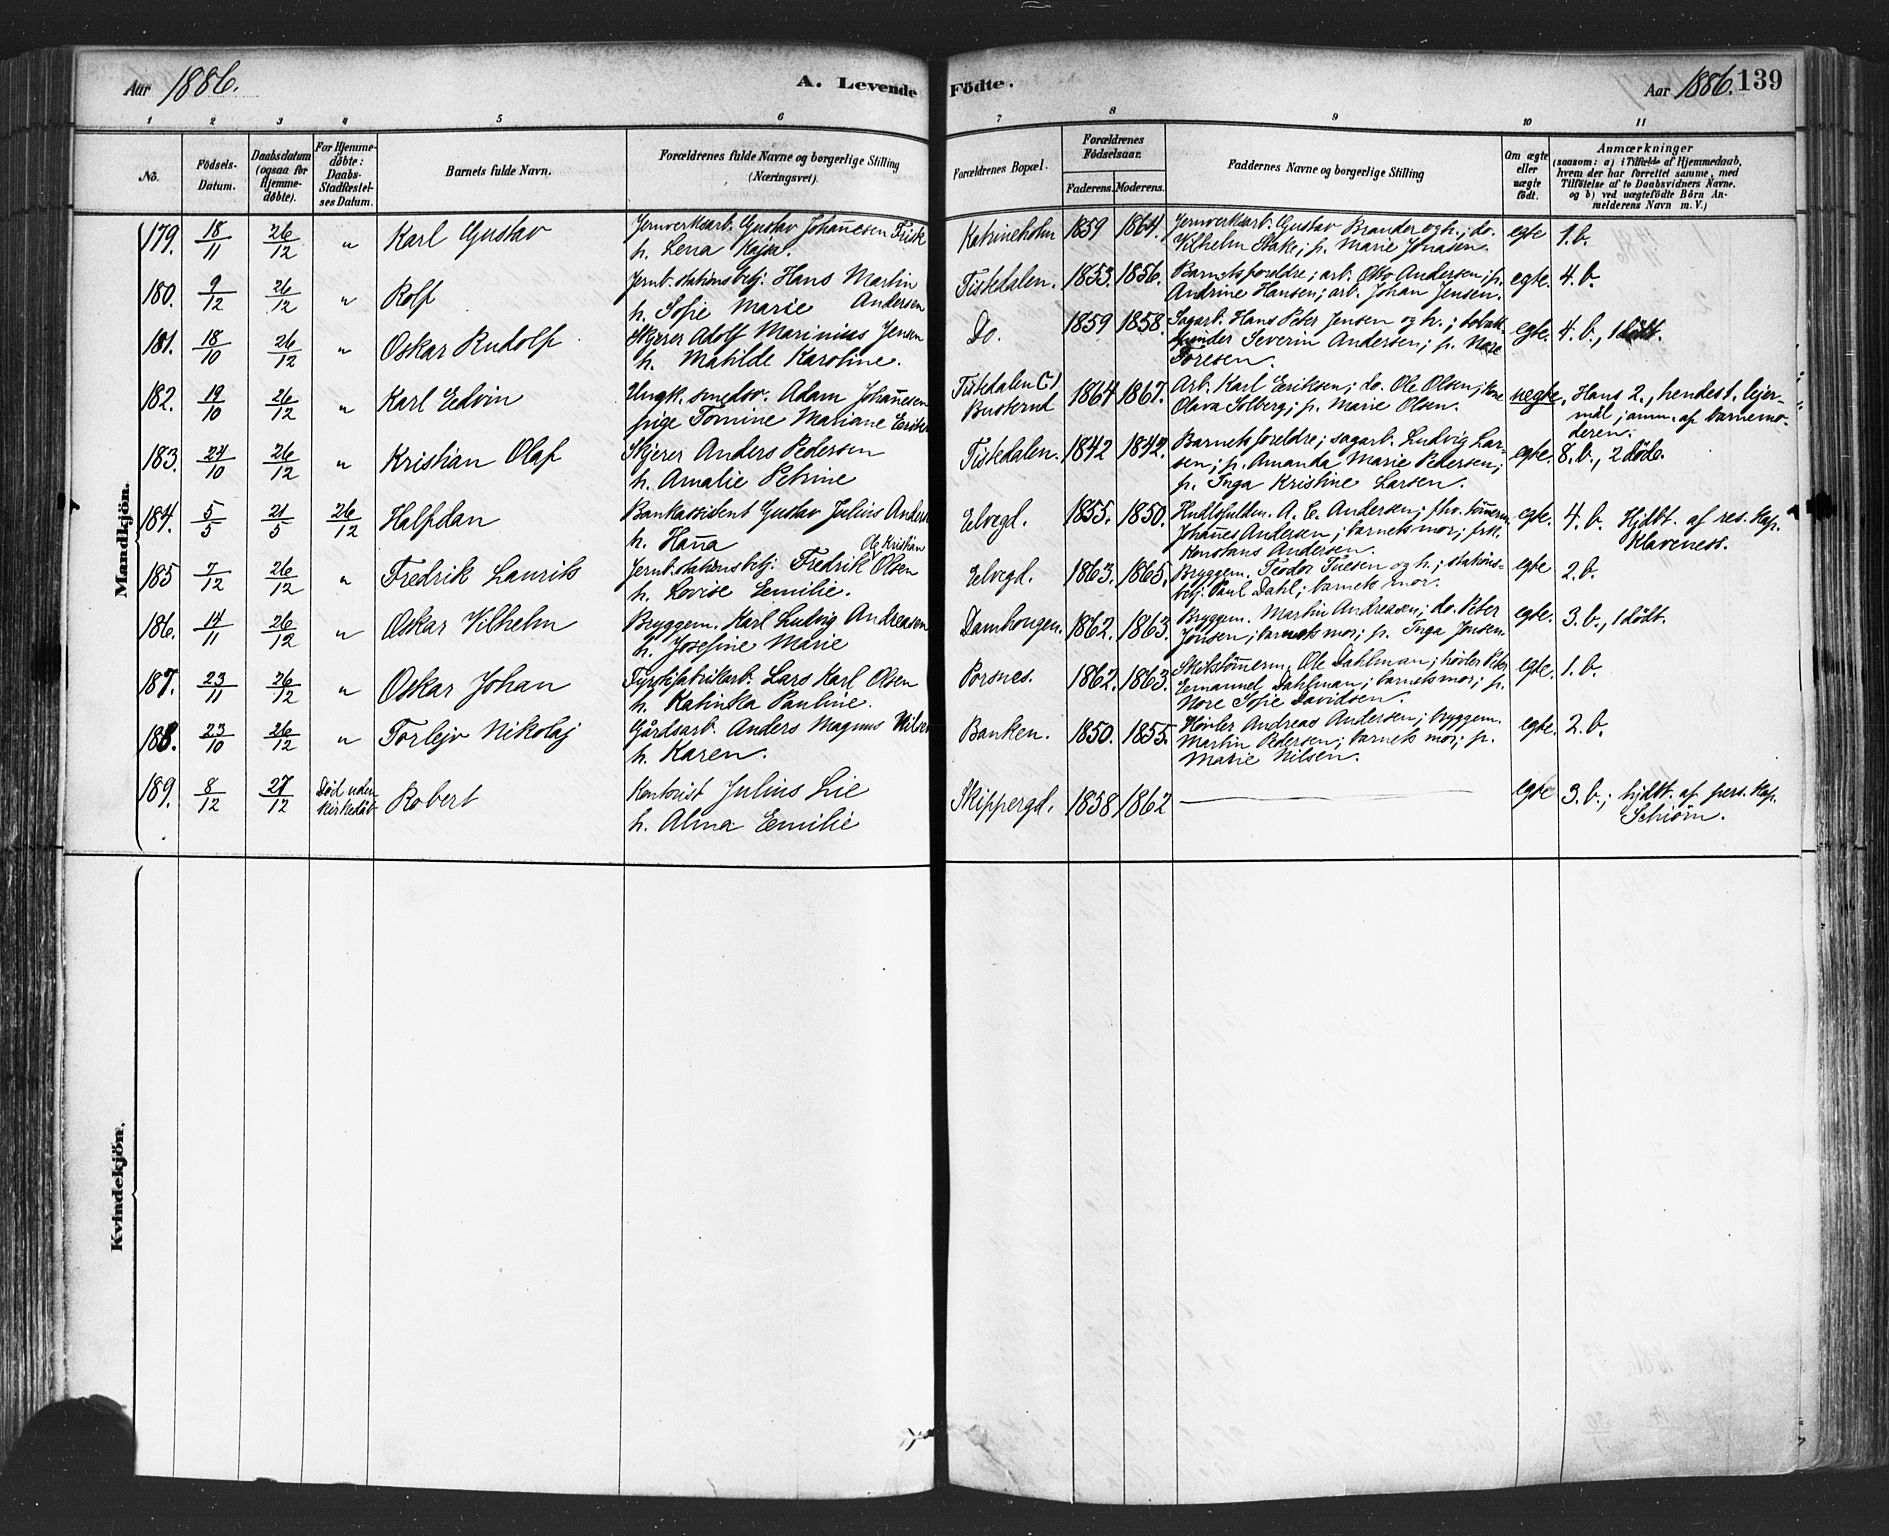 Aar 1886.
A. Levende Födte.
Aar 1886. 139
1 2 3 4 5 6 7 8 9 10 11
No.
Födsels-Datum.
Daabsdatum (ogsaa for Hjemmedöbte).
For Hjemmedöbte: Daabs-Stadfæstelses Datum.
Barnets fulde Navn.
Forældrenes fulde Navne og borgerlige Stilling (Næringsvei).
Forældrenes Bopæl.
Forældrenes Födselsaar.
Faderens. Moderens.
Faddernes Navne og borgerlige Stilling
Om ægte eller uægte födt.
Anmærkninger
(saasom: a) i Tilfælde af Hjemmedaab, hvem der har forrettet samme, med Tilföielse af to Daabsvidners Navne, og b) ved uægtefödte Börn Anmelderens Navn m. V.)
Mandkjön.
179. 18/11 26/12 " Karl Gustav
Jernverksarb. Gustav Johanesen Frisk
h. Lena Kajsa.
Katrineholm 1859 1864.
Jernverksarb. Gustav Brander og h.; do.
Vilhelm Stake; p. Marie Jonasen.
egte 1. b.
180. 9/12 26/12 " Rolf
Jernb. stationsbetj. Hans Martin Andersen
h. Sofie Marie
Tistedalen. 1853. 1856.
Barnets foreldre; arb. Otto Andersen; p.
Andrine Hansen; arb. Johan Jensen.
egte. 4. b.
181. 18/10 26/12 " Oskar Rudolf
Skjerer Adolf Marinius Jensen
h. Matilde Karoline.
Do. 1859 1858.
Sagarb. Hans Peter Jensen og h.;
Severin Andersen; p.
Toresen.
egte. 4. b., 1 dödt.
182. 19/10 26/12 " Karl Edvin
Ungk. smedsv. Adam Johanesen
pige Tomine Mariane
Tistedalen (:)
Busterud
1864 1867.
Arb. Karl Eriksen; do. Ole Olsen;
Olava Solberg; p. Marie Olsen.
uegte. Hans 2., hendes 1. lejermål; anm. af barnemoderen.
183. 24/10 26/12 " Kristian Olaf
Skjerer Anders Pedersen
h. Amalie Petrine
Tistedalen. 1842 1842.
Barnets foreldre; sagarb. Ludvig Larsen; p. Amanda Marie Pedersen;
p. Inga Kristine Larsen.
egte. 8. b., 2 döde.
184. 5/5 21/5 26/12 Halfdan
Bankassistent Gustav Julius Anders
h. Hana
Elvegd. 1855. 1850.
A. C. Andersen; fhv.
Johanes Andersen; barnets mor; frk.
Konstans Andersen.
egte. 4. b. Hjdbt. af res. kap. Klaveness.
185 7/12 26/12 " Fredrik Laurits
Ole Kristian
Jernb. stationsbetj. Fredrik Olsen
h. Lovise Emilie.
Elvegd. 1863. 1865.
Bryggem. Teodor Tuesen og h.; stationsbetj. Paul Dahl; barnets mor.
egte 2. b.
186. 14/11 26/12 " Oskar Vilhelm
Bryggem. Karl Ludvig Andreasen
h. Josefine Marie
Damhougen. 1862. 1863.
Bryggem. Martin Andreasen; do. Peter
Jonsen; barnets mor; p. Inga Jonsen
egte. 3. b., 1 dödt.
187. 23/11 26/12 " Oskar Johan
Fyrstikfabrikarb. Lars Karl Olsen
h. Katinka Pauline.
Porsnes. 1862. 1863.
Ole Dahlman; hövler Peter
Emanuel Dahlman; barnets mor; p.
Nore Sofie Davidsen.
egte. 1. b.
188. 23/10 26/12 " Torlejv Nikolaj
Gårdsarb. Anders Magnus Nilsen
h. Karen.
Banken. 1850. 1855.
Hövler Andreas Andersen; bryggem.
Martin Pedersen; barnets mor; p.
Marie Nilsen.
egte. 2. b.
189. 8/12 27/12 Död uden kirkedåb Robert
Kontorist Julius Lie
h. Alma Emilie
Skippergd. 1858 1862
egte 3. b.; hjdbt. af pers. kap. Schiörn.
Kvindekjön.